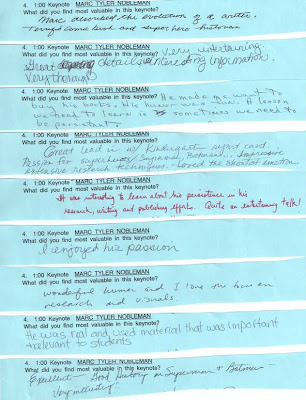 4. 1:00 Keynote MARC TYLER NOBLEMAN
What did you find most valuable in this keynote?
Marc described the evolution of a writer.
Terrific comic book and superhero historian
4. 1:00 Keynote MARC TYLER NOBLEMAN
What did you find most valuable in this keynote? Very entertaining
Great detail interesting information.
Very thorough
4. 1:00 Keynote MARC TYLER NOBLEMAN
What did you find most valuable in this keynote? He made me want to
buy his books. His humor was fun. A lesson
we need to learn is sometimes we need to
be persistent.
4. 1:00 Keynote MARC TYLER NOBLEMAN
What did you find most valuable in this keynote?
Great lead in w/ Kindergarten report card
Passion for superheroes Superman, Batman... Impressive
extensive research techniques. Loved the shoutout emotion.
4. 1:00 Keynote MARC TYLER NOBLEMAN
What did you find most valuable in this keynote?
It was interesting to learn about his persistence in his
research, writing and publishing efforts. Quite an entertaining talk!
4. 1:00 Keynote MARC TYLER NOBLEMAN
What did you find most valuable in this keynote?
I enjoyed his passion
4. 1:00 Keynote MARC TYLER NOBLEMAN
What did you find most valuable in this keynote?
wonderful humor and I love the focus on
research and visuals.
4. 1:00 Keynote MARC TYLER NOBLEMAN
What did you find most valuable in this keynote?
He was real and used material that was important
+ relevant to students
4. 1:00 Keynote MARC TYLER NOBLEMAN
What did you find most valuable in this keynote?
Excellent - Good history on Superman + Batman -
Very interesting!